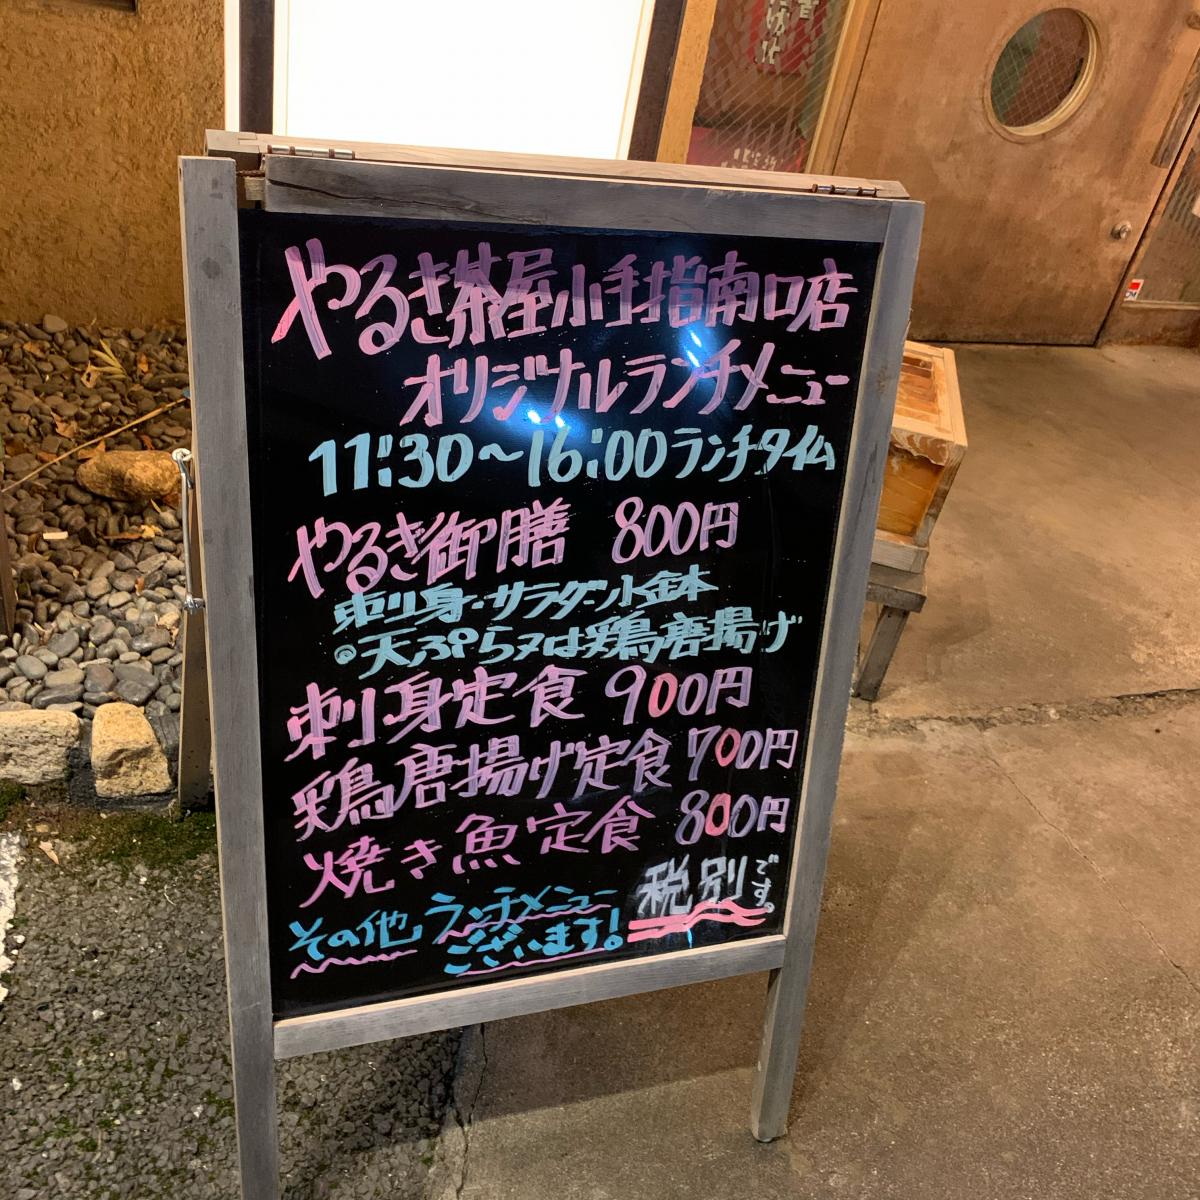 やるき茶屋小手指南口店
オリジナルランチメニュー
11:30〜16:00ランチタイム
やるき御膳 800円
刺身・サラダ・小鉢
。天ぷら又は鶏唐揚げ
刺身定食 900円
鶏唐揚げ定食 700円
焼き魚定食 800円
税別です。
その他 ランチメニュー
ございます!